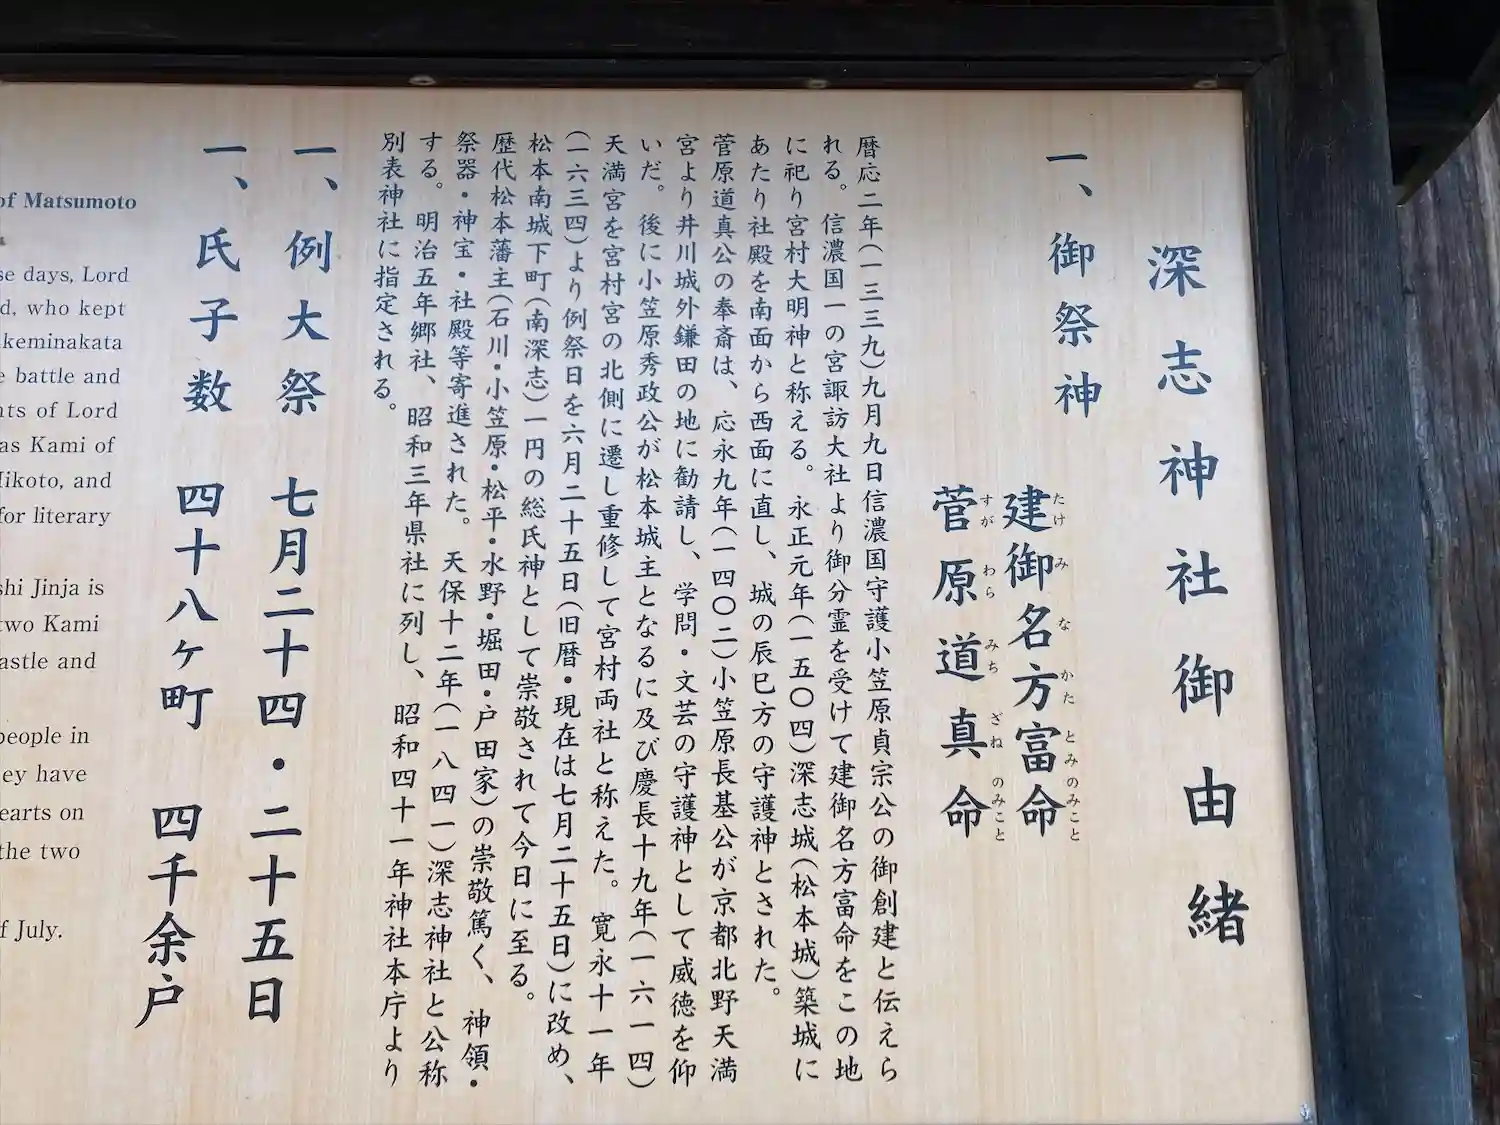 深志神社御由緒
一、御祭神
建御名方富命
たけみなかたとみのみこと
菅原道真命
すがわらみちざねのみこと
暦応二年(一三三九)九月九日信濃国守護小笠原貞宗公の御創建と伝えら
れる。信濃国一の宮諏訪大社より御分霊を受けて建御名方富命をこの地
に祀り宮村大明神と称える。永正元年(一五〇四)深志城(松本城)築城に
あたり社殿を南面から西面に直し、城の辰巳方の守護神とされた。
菅原道真公の奉斎は、応永九年(一四〇二)小笠原長基公が京都北野天満
宮より井川城外鎌田の地に勧請し、学問・文芸の守護神として威徳を仰
いだ。後に小笠原秀政公が松本城主となるに及び慶長十九年(一六一四)
天満宮を宮村宮の北側に遷し重修して宮村両社と称えた。寛永十一年
(一六三四)より例祭日を六月二十五日(旧暦・現在は七月二十五日)に改め、
松本南城下町(南深志)一円の総氏神として崇敬されて今日に至る。
歴代松本藩主(石川・小笠原・松平・水野・堀田・戸田家)の崇敬篤く、神領・
祭器・神宝・社殿等寄進された。天保十二年(一八四一)深志神社と公称
する。明治五年郷社、昭和三年県社に列し、昭和四十一年神社本庁より
別表神社に指定される。
一、例大祭 七月二十四・二十五日
一、氏子数 四十八ヶ町 四千余戸
of Matsumoto
se days, Lord
d, who kept
keminakata
e battle and
nts of Lord
as Kami of
Mikoto, and
for literary
shi Jinja is
two Kami
astle and
people in
ey have
earts on
the two
f July.